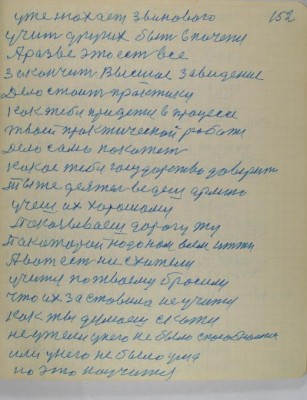 152
уже тохает звинового
учит других быт в почети
А разве это ест все
Законъчит Высшое Заведение
Дело стоит практики
Как тебя придети в процесе
твоей практической работи
дело само покажет
какое тебя государство доверит
Ты же дейтей ведеш армию
учеш их хорошому
Показиваеш дорогу ту
По каторай надо нам всем итти
А вот ест ни схители
учитя по твоему бросили
что их заставила не учитя
Как ты думаеш скажи
не ужели у него не было способности
или у него не было ума
но это научитя